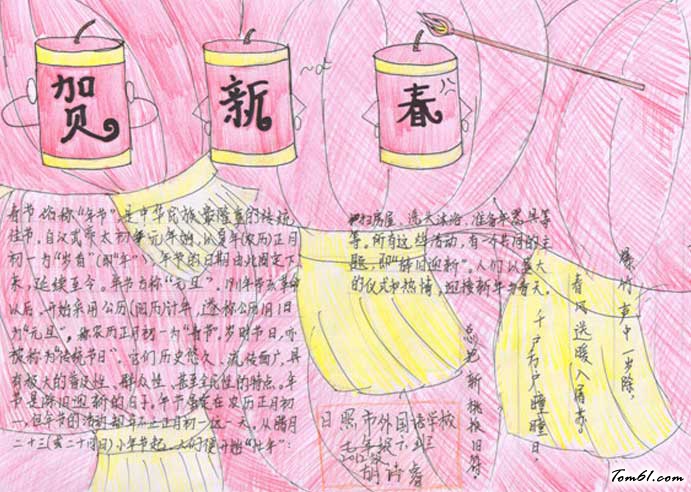 贺
新
春
春节俗称“年节”,是中华民族最隆重的传统
佳节。自汉武帝太初元年始,以夏年(农历)正月
初一为“岁首”(即“年”),年节的日期由此固定下
来,延续至今。年节古称“元旦”。1911年辛亥革命
以后,开始采用公历(阳历)计年,遂称公历1月1日
为“元旦”,称农历正月初一为“春节”。岁时节日,亦
被称为“传统节日”。它们历史悠久、流传面广,具
有极大的普及性、群众性、甚至全民性的特点。年
节是除旧迎新的日子。年节虽定在农历正月初
一,但年节的活动却并不止正月初一这一天。从腊月
二十三(或二十四日)小年节起,人们便开始“忙年”:
扫房屋、洗头沐浴、准备年器具等
等。所有这些活动,有一个共同的主
题,即“辞旧迎新”。人们以盛大
的仪式和热情,迎接新年和春天。
爆竹声中一岁除,
春风送暖入屠苏。
千户万户曈曈日
总把新桃换旧符。
日照市外国语学校
七年级六班
胡诗
Tom61.com